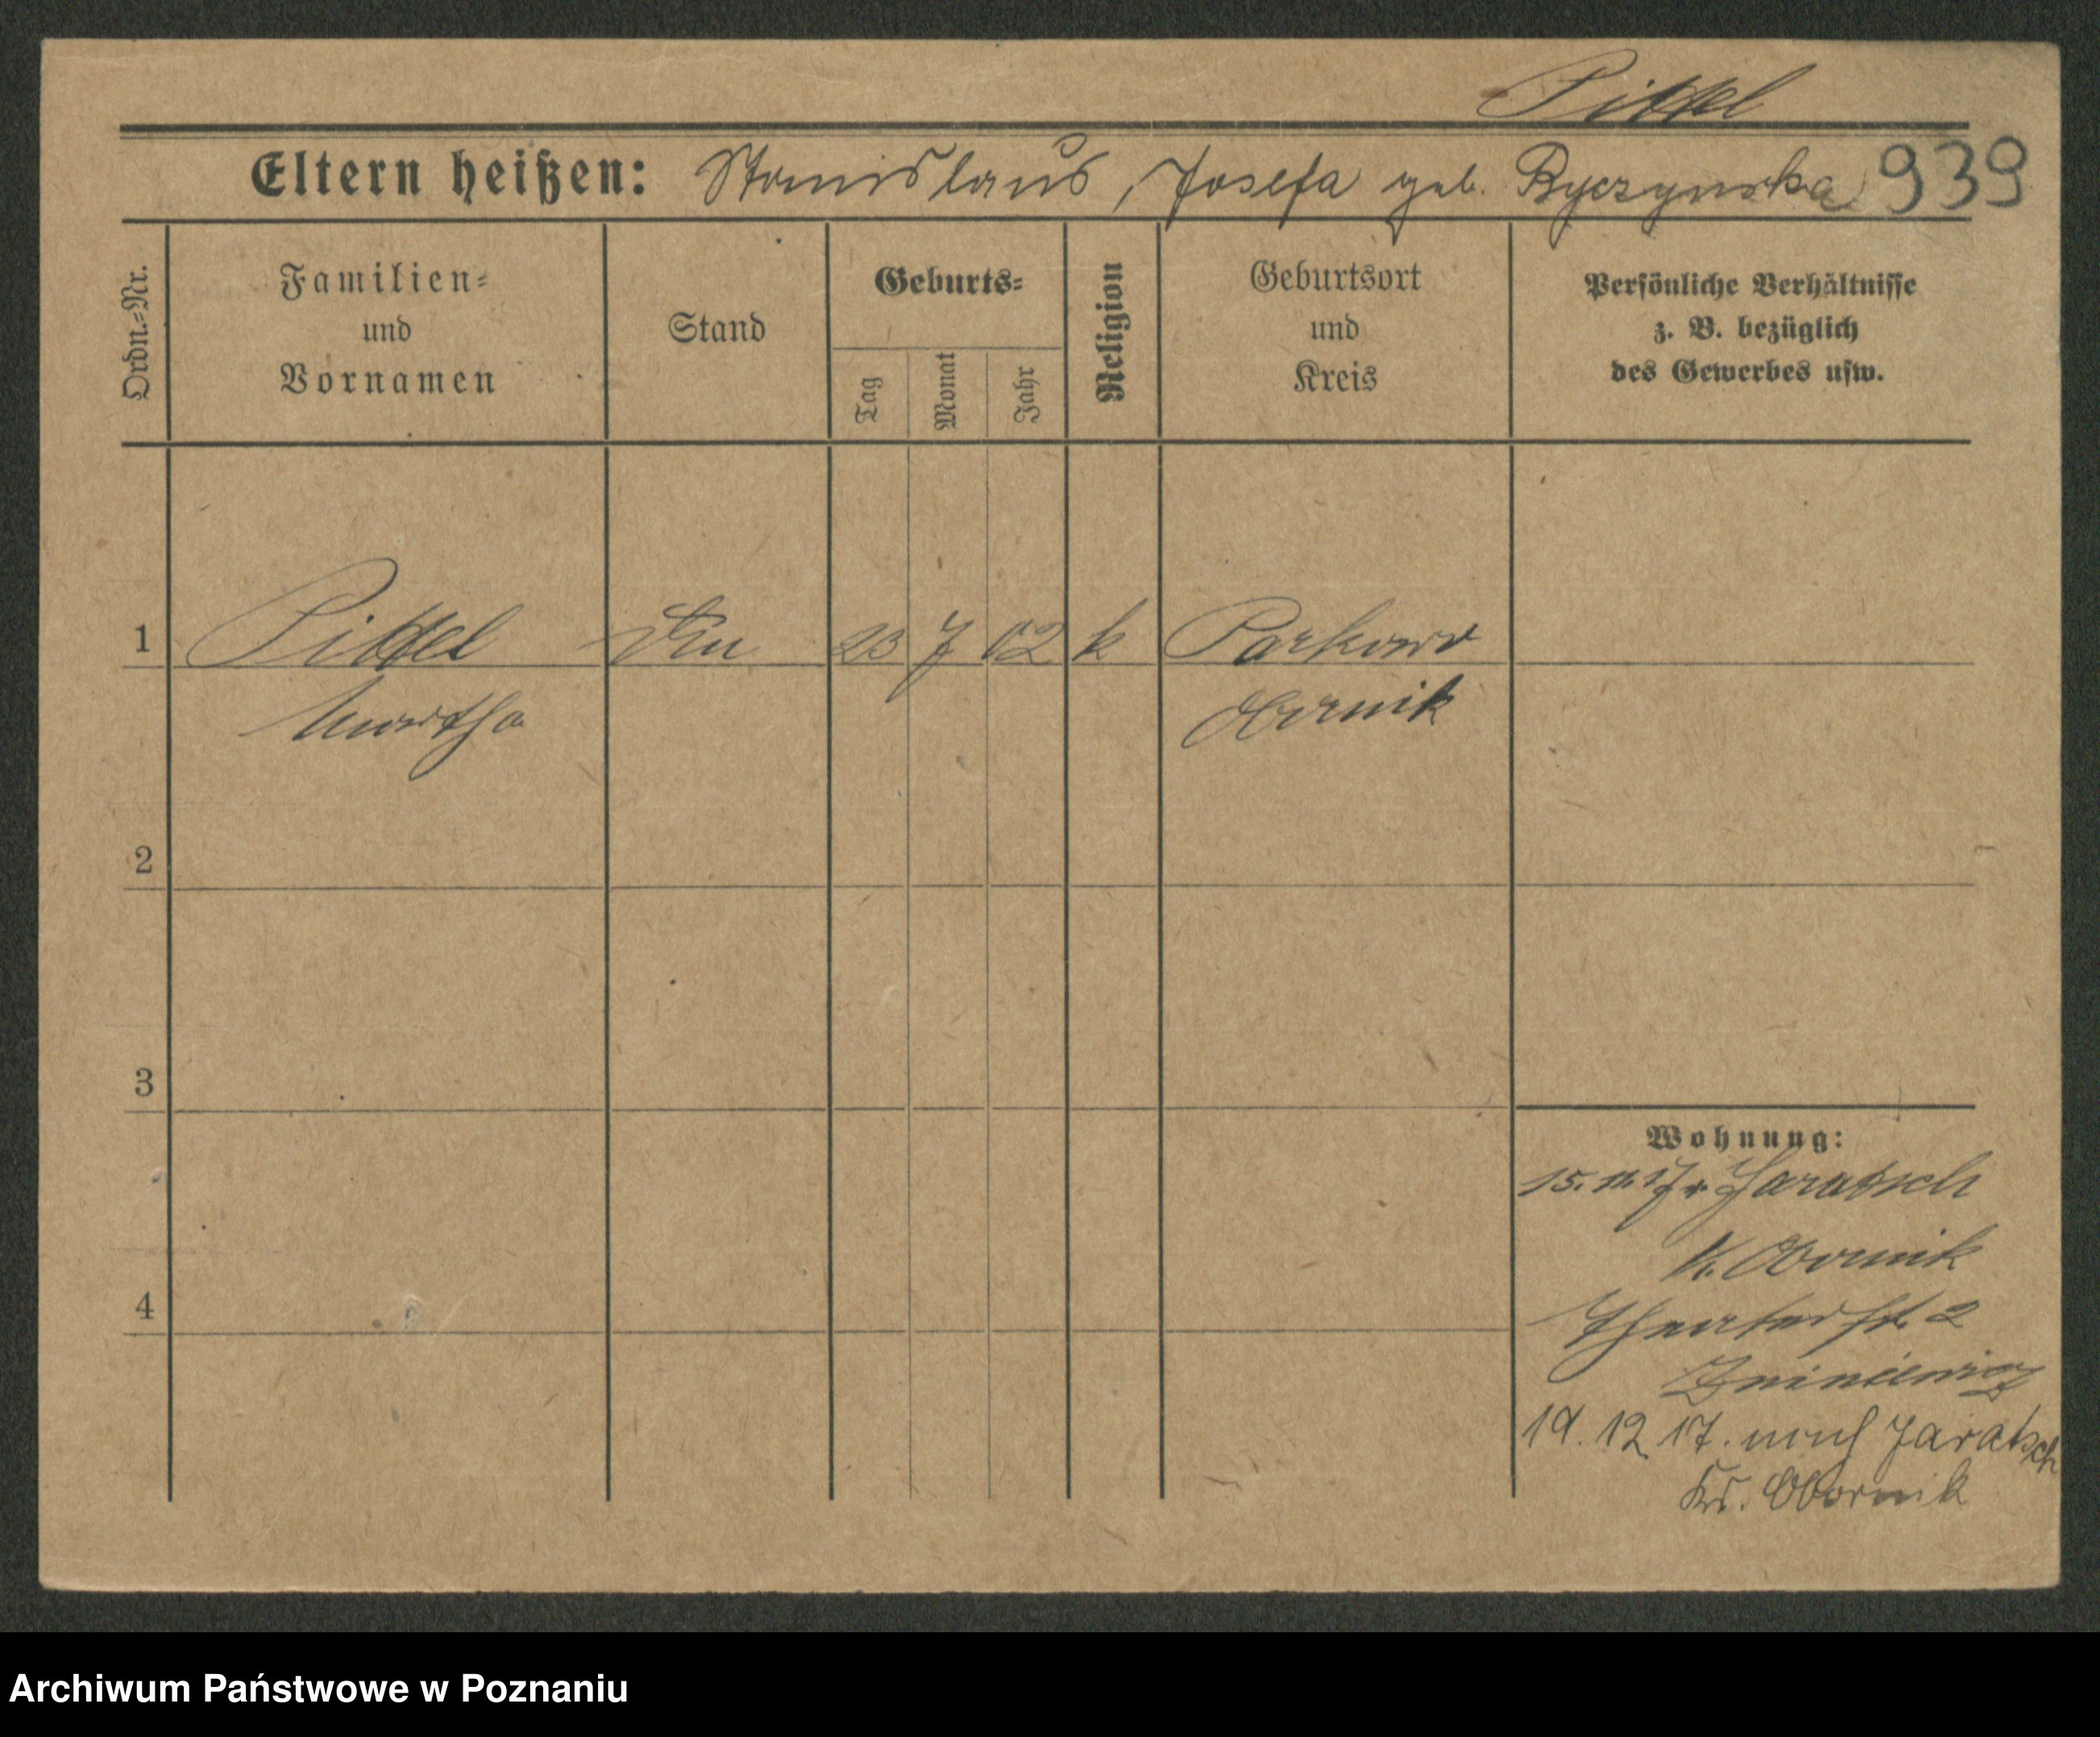 Pittel
Eltern heißen: Stanislaus, Josefa geb. Ryczynska 939
Ordn.-Nr.
Familien-
und
Vornamen
Stand
Geburts-
Tag
Monat
Jahr
Religion
Geburtsort
und
Kreis
Persönliche Verhältnisse
z. B. bezüglich
des Gewerbes usw.
1 Pittel 23 7 02 k Parkowo
Martha Obornik
2
3
4
Wohnung:
15. 11. 17 v. Jaratsch
K. Obornik
Theaterst. 2
19. 12 17. nach Jaratsch
Krs. Obornik
Archiwum Państwowe w Poznaniu